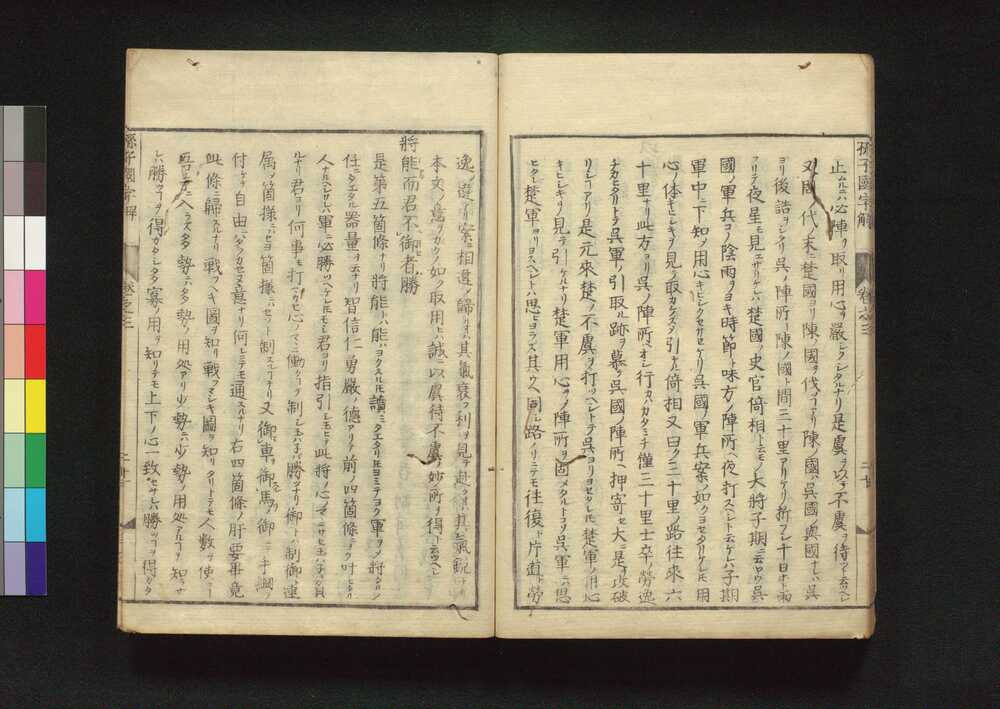 孫子國字解 卷之三 二ノ廿
止ムルニハ必陣ヲ取リ用心ヲ嚴シクシタルナリ是虞ヲ以テ不虞ヲ待ツト云ヘシ
又周ノ代ノ末ニ楚國ヨリ陳ノ國ヲ伐ツコトアリ陳國ハ呉國ノ與國ナレハ呉
ヨリ後詰ヲシタリ呉ノ陣所ト陳ノ國ト間三十里アリケリ折フシ十日ホト雨
フリテ夜星モ見エサリケレハ楚國ノ史官倚相ト云モノ大將子期ニ云ケルハ呉
國ノ軍兵コノ陰雨ヲヨキ時節ト味方ノ陣所ヘ夜打スヘシト云ケレハ子期
軍中ニ下知メ用心キヒシクセサセケリ呉國ノ軍兵案ノ如クヨセタリケレ𪜈用
心ノ体キヒシキヲ見テ取カケスメ引キケル倚相又曰ク三十里ノ路往來六
十里ナリ此方ヨリ呉ノ陣所マテオシ行カハカタミチ僅三十里士卒ノ勞逸
チカヒタリトテ呉軍ノ引取ル跡ヲ慕テ呉國ノ陣所ヘ押寄セ大ニ是ヲ攻破
リシコトアリ是元來楚ノ不虞ヲ打ツヘシトテ呉ヨリヨセタレ𪜈楚軍ノ用心
キヒシキヲ見テ引キケルナリ楚軍用心メ陣所ヲ固メタルトコロ呉軍ニハ思
ヒタレ楚軍ヨリヨスヘシトハ思ヒヨラス其ウヘ同シ路ノリニテモ往復ト片道ト勞
逸ノ違アリ案ニ相違メ歸ルハ其氣衰フ利ヲ見テ赴クハ其氣鋭ナリ
本文ノ意ヲカクノ如ク取用ヒハ誠ニ以虞待不虞ノ妙所ヲ得タリト云ツヘシ
將能而君不御者勝
是第五箇條ナリ將能トハ能ハヨクスル𪜈讀ミタエタリ𪜈ヨミテヨク軍ヲメ將タルノ
任ニタエタル器量ヲ云ナリ智信仁勇嚴ノ德アリテ前ノ四箇條ニヨク叶ヒタル
人ナルヘシサレハ軍ニ必勝ツヘケレ𪜈モシ君ヨリ指引シ玉ヒテ此將ノ心マヽニサセ玉ハヌ
ルナリ君ヨリ何事モ打マカセ心ノマヽニ働クコトヲ制シ玉ハネハ勝ツナリ御トハ制御ト連
屬メ箇樣ニセヨ箇樣ニハセソト制スルコトナリ又御車御馬ノ御ニテ手綱ヲ
付ケテ自由ニハタラカセヌ意ナリ何レニテモ通スルナリ右四箇條ノ肝要畢竟
此條ニ歸スルナリ戰フヘキ圖ヲ知リ戰フマシキ圖ヲ知リタリトテモ人數ヲ使フ
勝ツコトヲ得カタシ多寡ノ用ヲ知リテモ上下ノ心一致セサレハ勝ツコトヲ得カタ
孫子國字解 卷之三